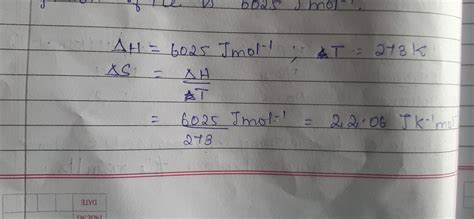 of ice is 6025 Jmol⁻¹.
ΔH = 6025 Jmol⁻¹ ; ΔT = 273 K
ΔS = ΔH/ΔT
= 6025 Jmol⁻¹/273 = 22.06 JK⁻¹mol
DATE
PAGE NO.